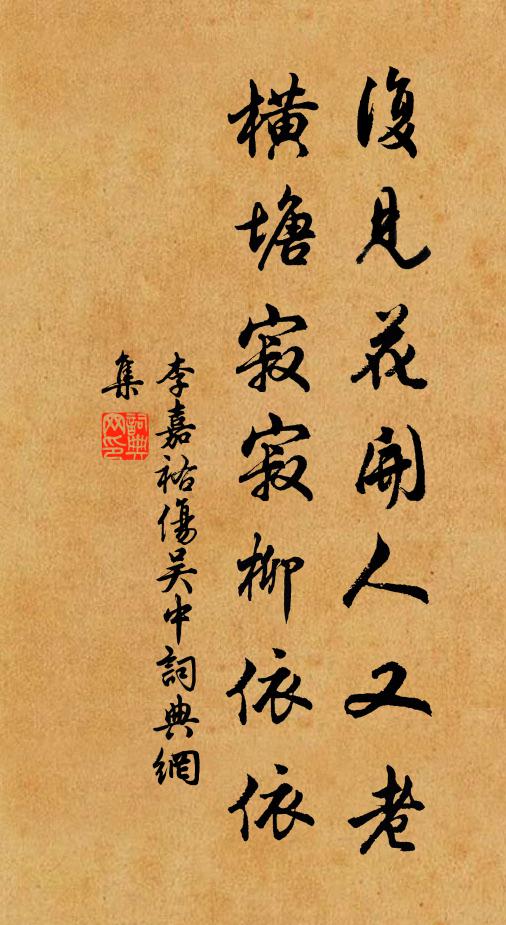 復見花開人又老
橫塘寂寂柳依依
李嘉祐傷吳中詞典網
集
詞典
网印